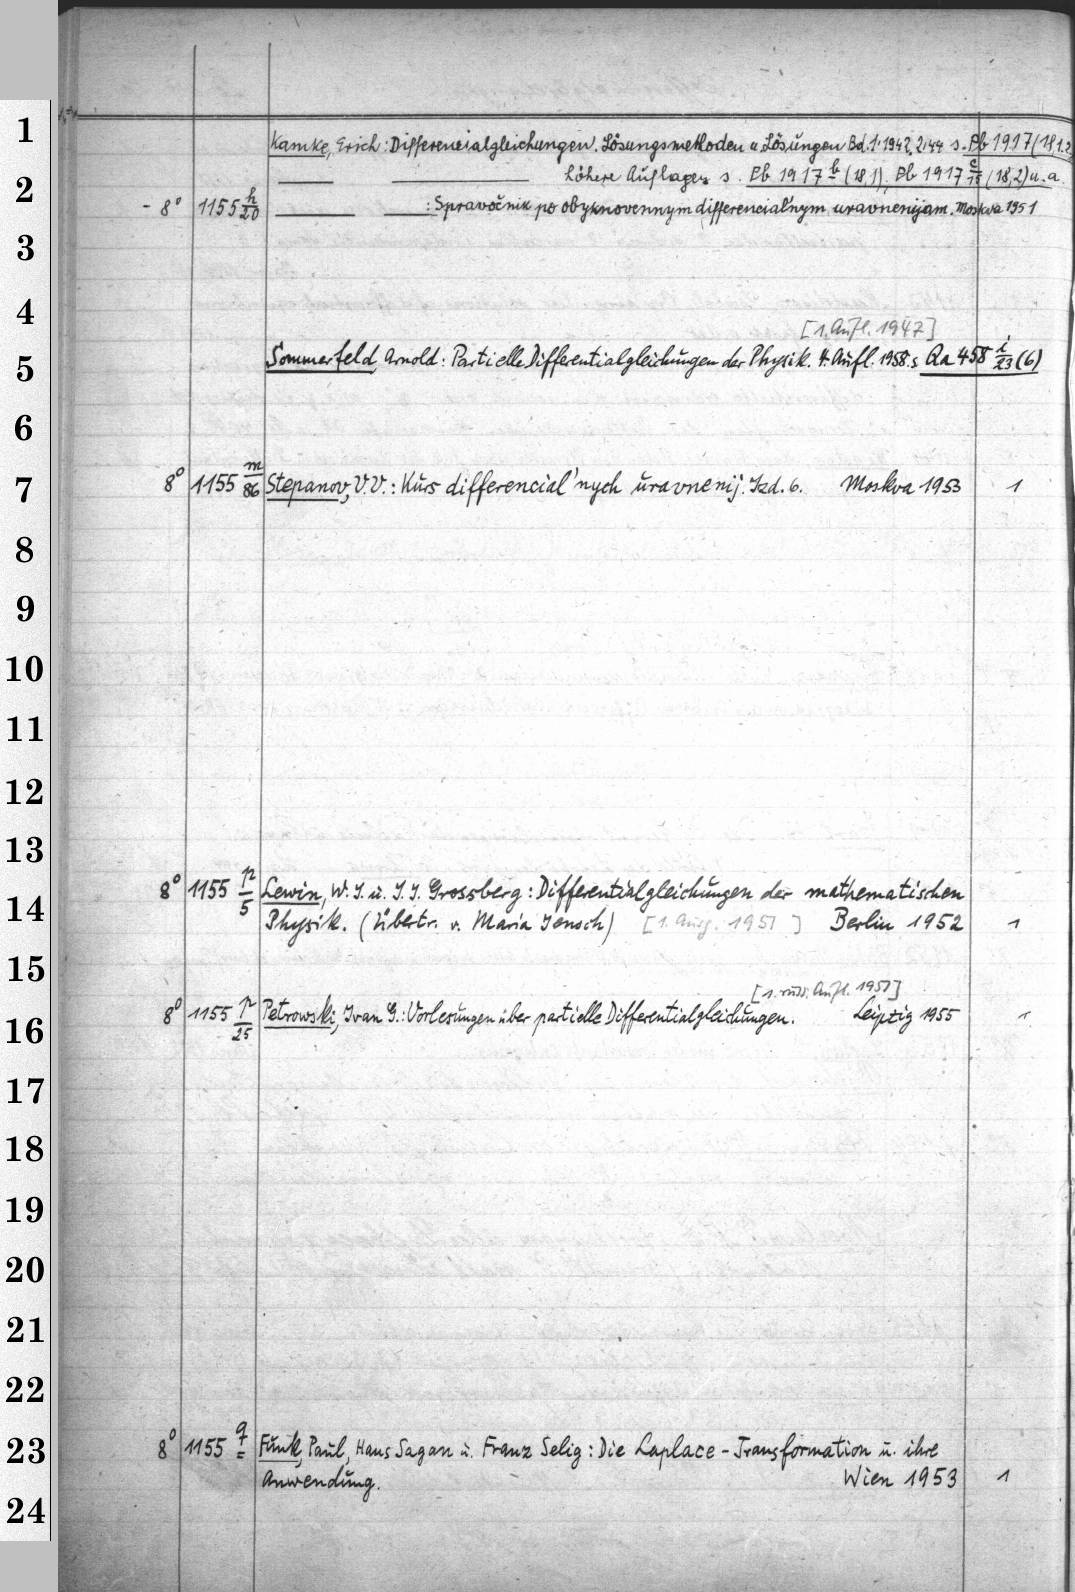 1
Kamke, Erich: Differencialgleichungen. Lösungsmethoden u Lösungen Bd.1:1942, 2:44 s. Pb 1917 (18 1.2
2
höhere Auflagen s. Pb 1917 b (18,1), Pb 1917 c/15 (18,2) u. a.
- 8° 1155 h/20 : Spravočnik po obyknovennym differencial'nym uravnenijam. Moskva 1951
3
4
[1. Aufl. 1947]
5 Sommerfeld, Arnold: Partielle Differentialgleichungen der Physik. 4. Aufl. 1958. s. Qa 458 i/23 (6)
6
7 8° 1155 m/86 Stepanov, V.V.: Kurs differencial'nych uravnenij. Izd. 6. Moskva 1953 1
8
9
10
11
12
13
8° 1155 p/5 Lewin, W. I. u. I. I. Grossberg: Differentialgleichungen der mathematischen
14 Physik. (Übertr. v. Maria Jensch) [1. Ausg. 1951] Berlin 1952 1
15
[1. russ. Aufl. 1951]
16 8° 1155 p/25 Petrowski, Ivan G.: Vorlesungen über partielle Differentialgleichungen. Leipzig 1955 1
17
18
19
20
21
22
23 8° 1155 q Funk, Paul, Hans Sagan u. Franz Selig: Die Laplace-Transformation u. ihre
Anwendung. Wien 1953 1
24